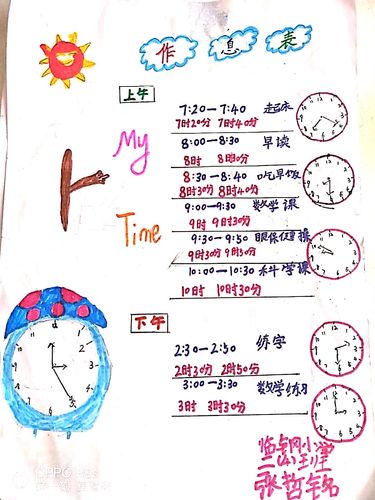 作息表
上午
7:20-7:40 起床
7时20分 7时40分
My
8:00-8:30 早读
8时 8时30分
8:30-8:40 吃早饭
8时30分 8时40分
9:00-9:30 数学课
9时 9时30分
Time
9:30-9:50 眼保健操
9时30分 9时50分
10:00-10:30 科学课
10时 10时30分
下午
2:30-2:50 练字
2时30分 2时50分
3:00-3:30 数学练习
3时 3时30分
临钢小学
二(4)班
张哲铭
OPPO